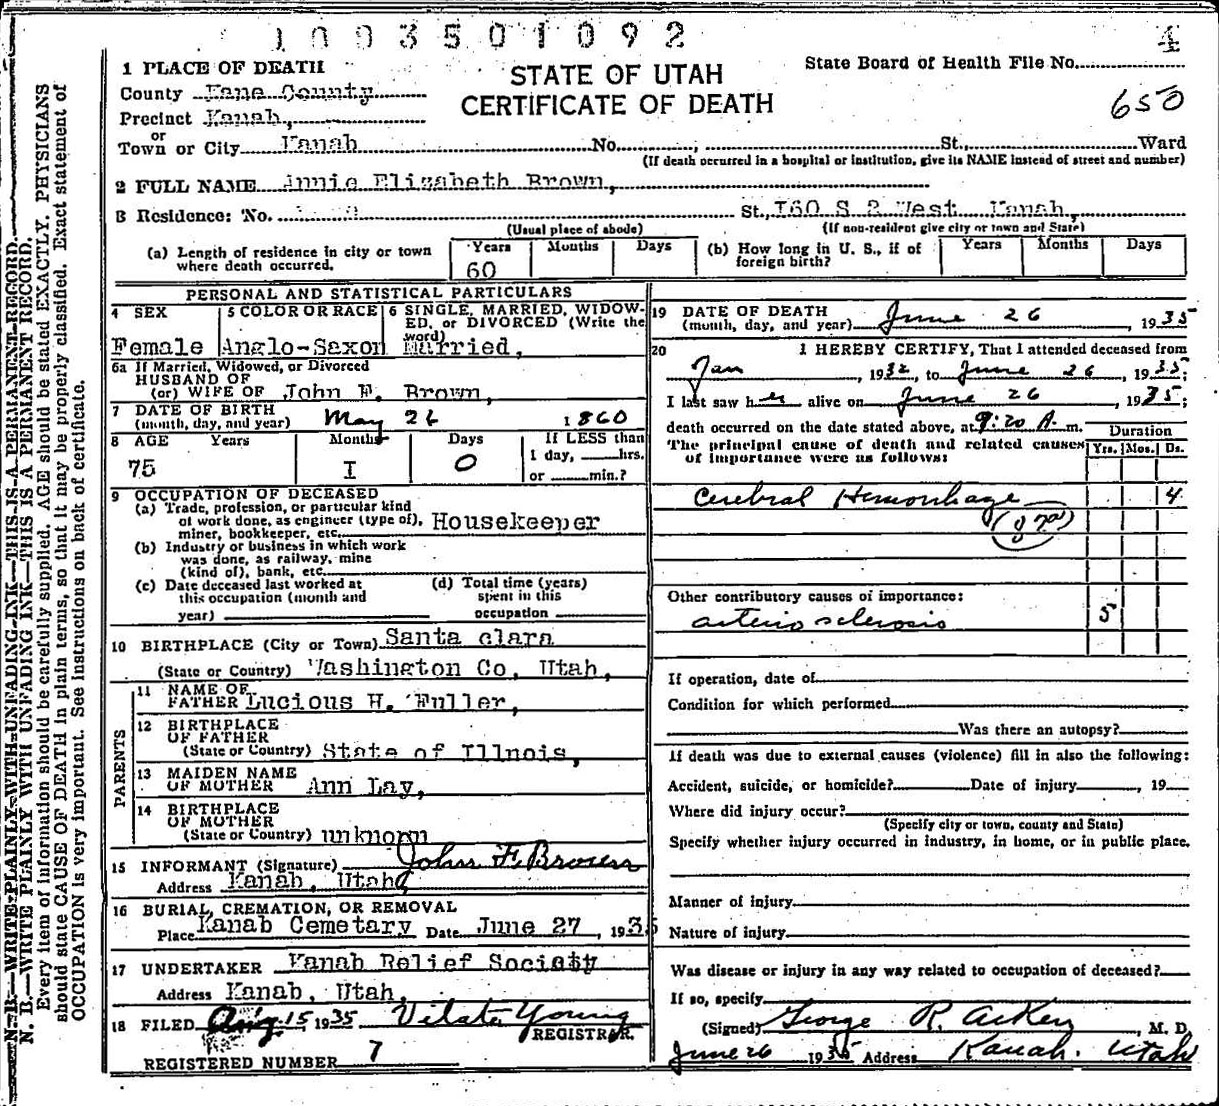 1003501092 4
1 PLACE OF DEATH
STATE OF UTAH
CERTIFICATE OF DEATH
State Board of Health File No.
650
County Kane County
Precinct Kanab,
or
Town or City Kanab No. , St., Ward
(If death occurred in a hospital or institution, give its NAME instead of street and number)
2 FULL NAME Annie Elizabeth Brown,
3 Residence: No. St., I60 S 2 West Kanab,
(Usual place of abode) (If non-resident give city or town and State)
(a) Length of residence in city or town where death occurred. Years 60 Months Days
(b) How long in U. S., if of foreign birth? Years Months Days
PERSONAL AND STATISTICAL PARTICULARS
4 SEX Female
5 COLOR OR RACE Anglo-Saxon
6 SINGLE, MARRIED, WIDOW-
ED, or DIVORCED (Write the
word) Married,
6a If Married, Widowed, or Divorced
HUSBAND OF
(or) WIFE OF John F. Brown,
7 DATE OF BIRTH
(month, day, and year) May 26 1860
8 AGE Years Months Days If LESS than
75 I 0 1 day, hrs.
or min.?
9 OCCUPATION OF DECEASED
(a) Trade, profession, or particular kind
of work done, as engineer (type of), Housekeeper
miner, bookkeeper, etc.
(b) Industry or business in which work
was done, as railway, mine
(kind of), bank, etc.
(c) Date deceased last worked at
this occupation (month and
year)
(d) Total time (years)
spent in this
occupation
10 BIRTHPLACE (City or Town) Santa clara
(State or Country) Washington Co, Utah,
PARENTS
11 NAME OF
FATHER Lucious H. Fuller,
12 BIRTHPLACE
OF FATHER
(State or Country) State of Illnois,
13 MAIDEN NAME
OF MOTHER Ann Lay,
14 BIRTHPLACE
OF MOTHER
(State or Country) unknorn
15 INFORMANT (Signature) John F. Brown
Address Kanab, Utah
16 BURIAL, CREMATION, OR REMOVAL
Place Kanab Cemetary Date June 27, 1935
17 UNDERTAKER Kanab Relief Society
Address Kanab, Utah,
18 FILED Aug 15 1935 Vilate Young
REGISTRAR.
REGISTERED NUMBER 7
19 DATE OF DEATH
(month, day, and year) June 26, 1935
20 I HEREBY CERTIFY, That I attended deceased from
Jan, 1932, to June 26, 1935;
I last saw her alive on June 26, 1935;
death occurred on the date stated above, at 9:20 A. m.
The principal cause of death and related causes
of importance were as follows:
Duration
Yrs. Mos. Ds.
Cerebral Hemorrhage 4
Other contributory causes of importance:
arterio sclerosis 5
If operation, date of
Condition for which performed
Was there an autopsy?
If death was due to external causes (violence) fill in also the following:
Accident, suicide, or homicide? Date of injury , 19
Where did injury occur?
(Specify city or town, county and State)
Specify whether injury occurred in industry, in home, or in public place.
Manner of injury
Nature of injury
Was disease or injury in any way related to occupation of deceased?
If so, specify
(Signed) George R. Aiken, M. D.
June 26 1935 Address Kanab. Utah
N. B.—WRITE PLAINLY WITH UNFADING INK—THIS IS A PERMANENT RECORD.
N. B.—WRITE PLAINLY WITH UNFADING INK—THIS IS A PERMANENT RECORD.
Every item of information should be carefully supplied. AGE should be stated EXACTLY. PHYSICIANS
should state CAUSE OF DEATH in plain terms, so that it may be properly classified. Exact statement of
OCCUPATION is very important. See instructions on back of certificate.